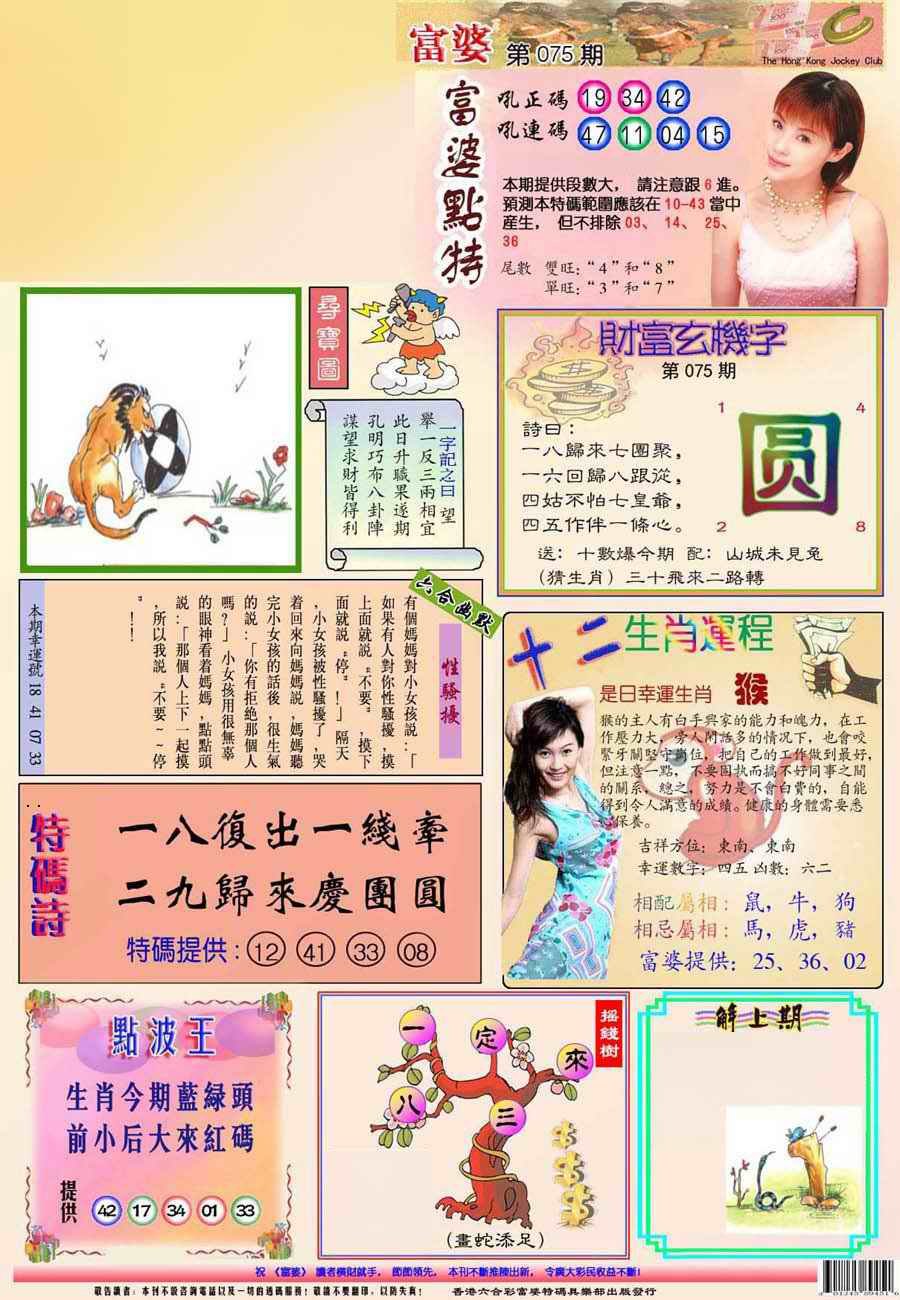 富婆 第 075 期
The Hong Kong Jockey Club
富婆點特
吼正碼 19 34 42
吼連碼 47 11 04 15
本期提供段數大， 請注意跟 6 進。
預測本特碼範圍應該在 10-43 當中
産生， 但不排除 03、 14、 25、
36
尾數 雙旺：“4”和“8”
單旺：“3”和“7”
尋寶圖
一字記之曰 望
舉一反三兩相宜
此日升職果遂期
孔明巧布八卦陣
謀望求財皆得利
財富玄機字
第 075 期
詩曰：
一八歸來七團聚，
一六回歸八跟從，
四姑不怕七皇爺，
四五作伴一條心。
1 4
圆
2 8
送：十數爆今期 配：山城未見兔
（猜生肖）三十飛來二路轉
六合幽默
性騷擾
有個媽媽對小女孩説：「
如果有人對你性騷擾，摸
上面就説“不要”，摸下
面就説“停”！」隔天
，小女孩被性騷擾了，哭
着回來向媽媽説，媽媽聽
完小女孩的話後，很生氣
的説：「你有拒絶那個人
嗎？」小女孩用很無辜
的眼神看着媽媽，點點頭
説：「那個人上下一起摸
，所以我説“不要~~停
”！！
本期幸運號 18 41 07 33
十二生肖運程
是日幸運生肖 猴
猴的主人有白手興家的能力和魄力，在工
作壓力大，旁人閒話多的情况下，也會咬
緊牙關堅守崗位，把自己的工作做到最好，
但注意一點，不要固執而搞不好同事之間
的關系，總之，努力是不會白費的，自能
得到令人滿意的成績。健康的身體需要悉
保養。
吉祥方位：東南、東南
幸運數字：四五 凶數：六二
相配屬相：鼠，牛，狗
相忌屬相：馬，虎，豬
富婆提供：25、36、02
特碼詩
一八復出一綫牽
二九歸來慶團圓
特碼提供：12 41 33 08
點波王
生肖今期藍緑頭
前小后大來紅碼
提供 42 17 34 01 33
摇錢樹
一 定 來
八 三
（畫蛇添足）
解上期
祝 《富婆》 讀者横財就手， 節節領先， 本刊不斷推陳出新， 令廣大彩民收益不斷！
敬告讀者：本刊不設咨詢電話以及一切的透碼服務！敬請不要翻印，以防失真！ 香港六合彩富婆特碼具樂部出版發行